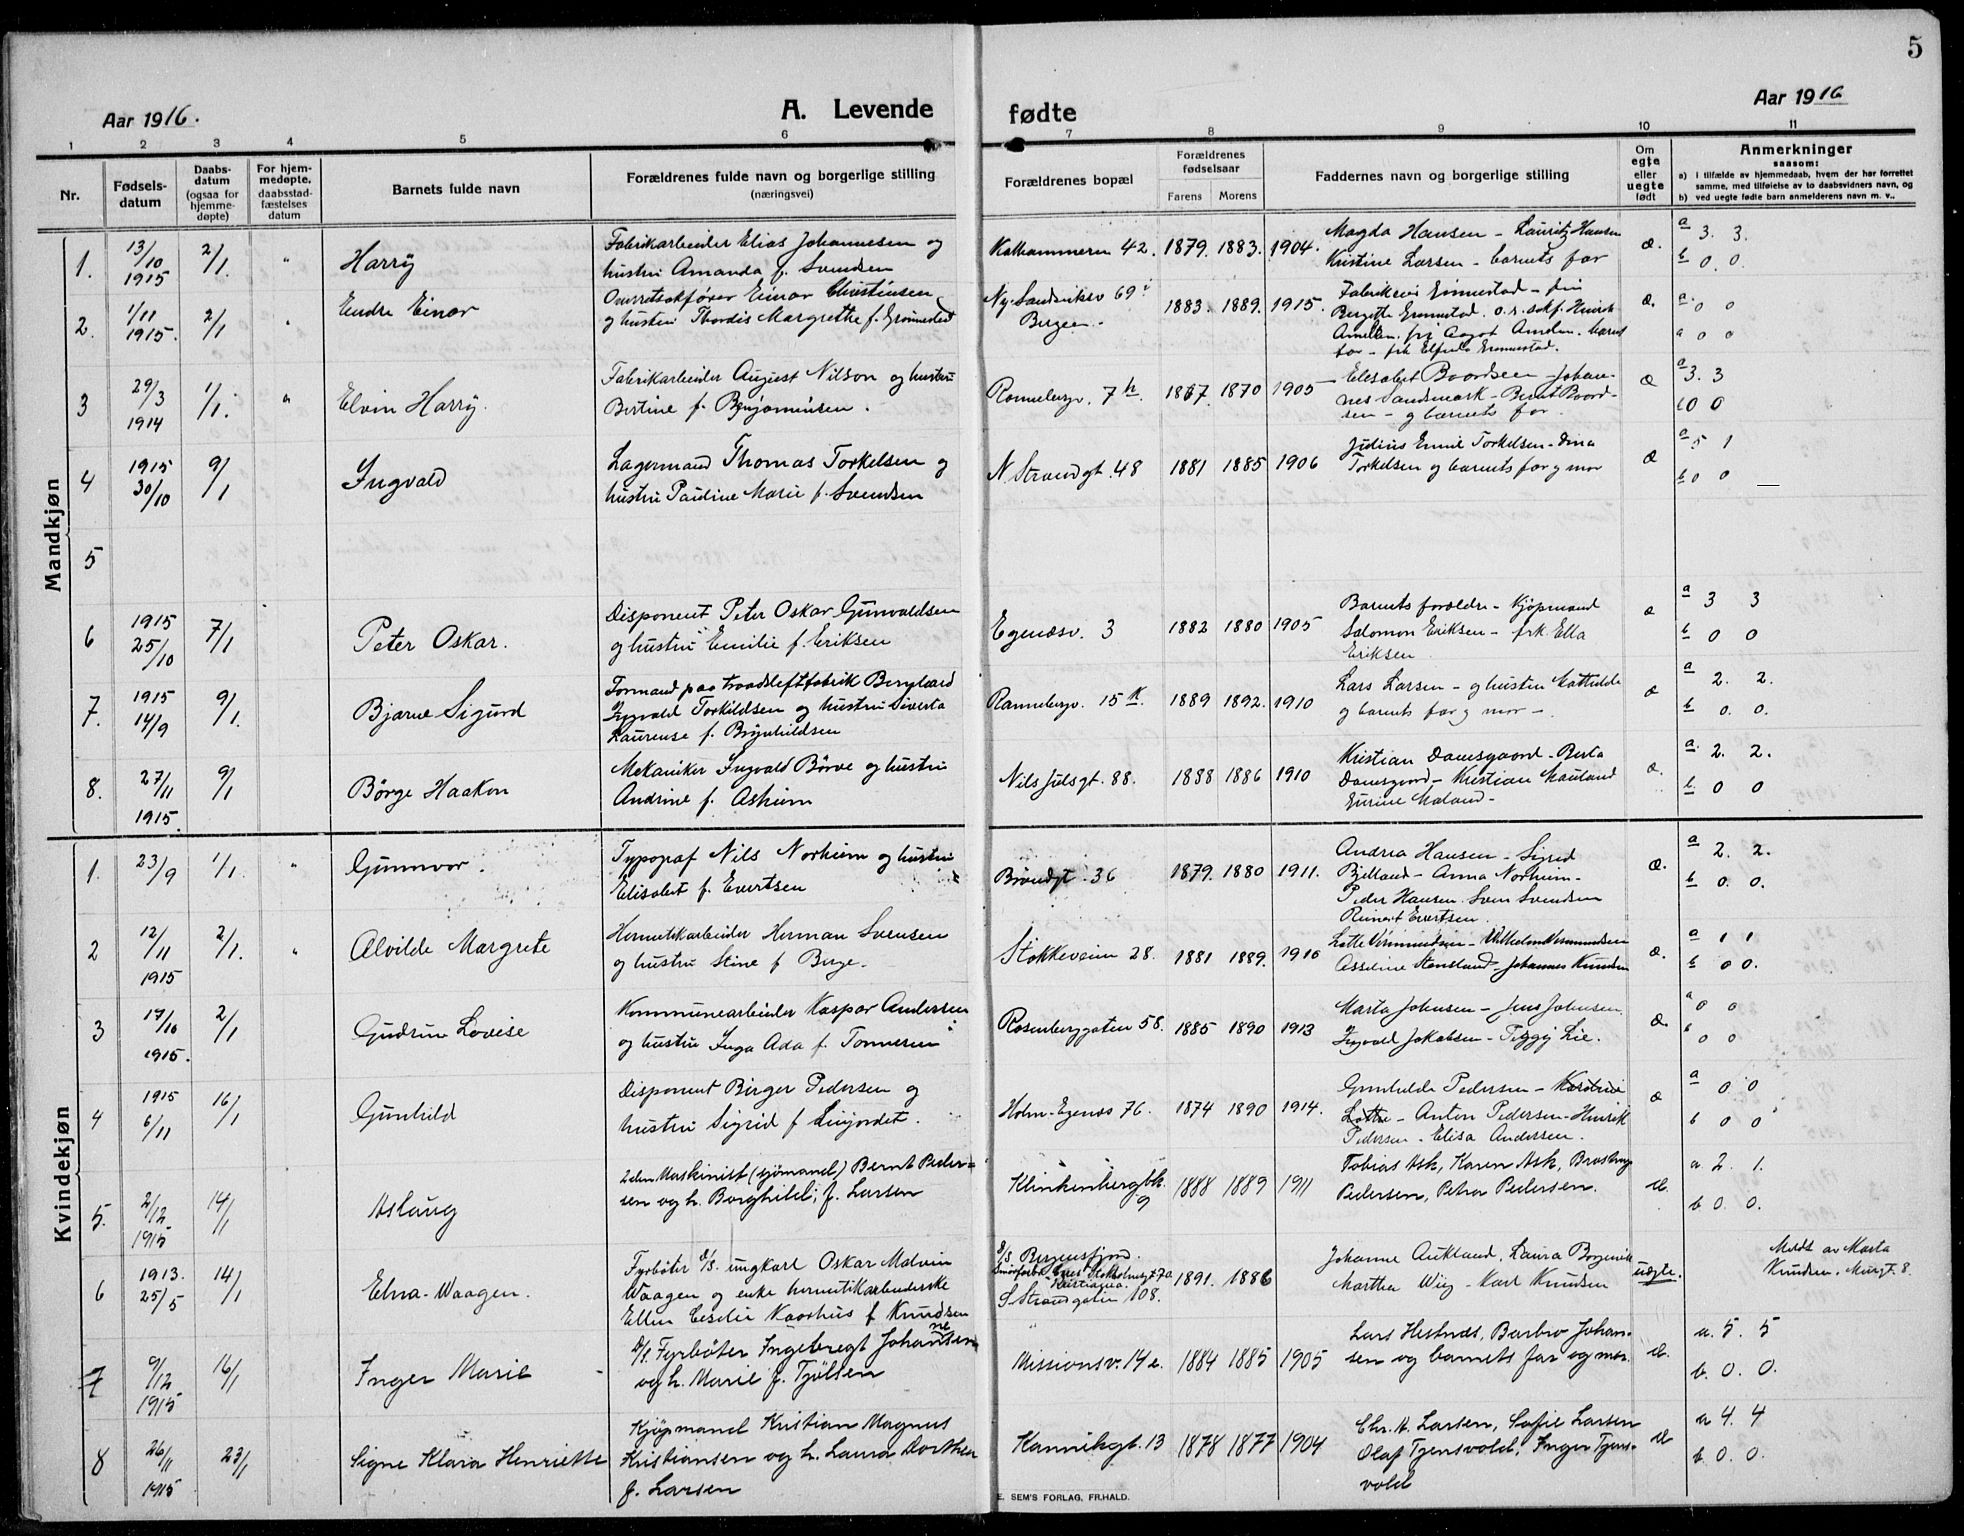 5
Aar 1916.
A. Levende
fødte
Aar 1916
1 2 3 4 5 6 7 8 9 10 11
Nr.
Fødselsdatum
Daabsdatum (ogsaa for hjemmedøpte)
For hjemmedøpte. daabsstadfæstelses datum
Barnets fulde navn
Forældrenes fulde navn og borgerlige stilling (næringsvei)
Forældrenes bopæl
Forældrenes fødselsaar
Farens Morens
Faddernes navn og borgerlige stilling
Om egte eller uegte født
Anmerkninger
saasom:
a) i tilfælde av hjemmedaab, hvem der har forrettet samme, med tilføielse av to daabsvidners navn, og
b) ved uegte fødte barn anmelderens navn m. v.,
Mandkjøn
1. 13/10 1915 2/1. " Harry
Fabrikarbeider Elias Johannesen og
hustru Amanda f. Svendsen
Kalhammeren 42. 1879. 1883. 1904.
Magda Hansen - Lauritz Hansen
Kristine Larsen - barnets far
æ. a 3. 3. b 0. 0.
2. 1/11 1915. 2/1 " Endre Einar
Overretssakfører Einar Christensen
og hustru Thordis Margrethe f. Grønnestad
Ny. Sandviksv 69 Bergen. 1883. 1889. 1915.
æ. a. 0 0
a 0 0
3 29/3 1914 1/1. " Elvin Harry.
Fabrikarbeider August Nilson og hustru
Bertine f. Benjaminsen.
Rannebergv. 7 h. 1867. 1870 1905
Elesabet Boordseen - Johan-
nes Sandsmark - Berut Boord-
sen - og barnets far.
æ a 3. 3 b 0 0
4 1915 30/10 9/1 Ingvald
Lagermand Thomas Torkelsen og
hustru Pauline Marie f. Svendsen
N. Strandgt. 48 1881 1885 1906
Julius Emil Torkelsen - Dina
Torkelsen og barnets far og mor
æ a 5 1 b 0 0
5
6 1915 25/10 7/1 Peter Oskar.
Disponent Peter Oskar Gunvaldsen
og hustru Emilie f. Eriksen
Egenæsv. 3 1882 1880 1905
Barnets forældre - Kjøpmand
Salomon Eriksen - frk. Ella
Eriksen
æ a 3 3 b 0 0
7. 1915 14/9 9/1. Bjarne Sigurd
Formand paa traadsleftfabrik Berglard
Ingvald Torkildsen og hustru Siverta
Laurense f. Brynhildsen
Rannebergv. 15 K. 1889 1892. 1910
Lars Larsen - og hustru Mathilde
og barnets far og mor -.
æ a 2. 2. b 0. 0.
8. 27/11 1915. 9/1 Børge Haakon
Mekaniker Ingvald Børve og hustru
Andrine f. Asheim
Nils Julsgt. 88. 1888 1886 1910
Kristian Danesgaard - Berta
Danesgaard - Kristian Mauland
Eurine Maland -
æ. a. 2. 2. b. 0 0
Kvindekjøn
1. 23/9 1/1. " Gunnvor.
Typograf Nils Norheim og hustru
Elisabet f. Evertsen
Brøndgt. 36 1879. 1880 1911.
Andrea Hansen - Sigrid
Bjelland - Anna Norheim -
Peder Hansen. Sven Svendsen
Reinert Evertsen.
æ. a 2. 2. b 0. 0.
2 12/11 1915 2/1. " Alvilde Margrete
Hermetikarbeider Herman Svensen
og hustru Stine f Berge.
Stokkeveien 28. 1881 1889. 1916
Lotte Vermundsen - Wilhelm Vermundsen
Asseline Stensland - Johannes Knudsen
æ. a 1 1 b 0 0.
3 17/10 1915. 2/1 Gudrun Lovise
Kommunearbeider Kaspar Andersen
og hustru Inga Ada f. Tonnesen
Rosenberggaten 58. 1885 1890 1913
Marta Johnsen - Jens Johnsen
Ingvald Jakobsen - Peggy Lie.
æ. a 0 0 b 0 0
4 1915 6/11 16/1 Gunhild
Disponent Birger Pedersen og
hustru Sigrid f Linjordet.
Holm-Egenæs 76. 1874 1890 1914.
Gunhilde Pedersen - Karoline
Lotte - Anton Pedersen - Henrik
Pedersen - Elisa Andersen.
æ a 0 0 b 0 0
5. 2/12 1915 14/1 Aslaug
2den Maskinist (sjømand) Bernt Peder-
sen og h. Borghild, f. Larsen
Klinkenbergbk. 9 1888 1889 1911
Tobias Ask, Karen Ask,
Pedersen, Petra Pedersen.
æ. a 2. 1. b 0. 0.
6 1913. 25/5 14/1 Elna Waagen.
Fyrbøter d/s. ungkarl Oskar Malvin
Waagen og enke hermetikarbeiderske
Ellen Cesilie Kaarhus f Knudsen
D/S Bergensfjord.
Kristiania.
S. Strandgaten 108. 1891. 1886
Johanne Aukland, Laura
Martha Wiig - Karl Knudsen
uegte.
Meldt av Marta
Knudsen, Murgt. 8.
7 9/12 1915 16/1 Inger Marie
d/s. Fyrbøter Ingebregt Johannesen
og h. Marie f. Tjølsen
Missionsv. 14 e. 1884 1885 1905
Lars Hestnæs, Barbro Johan-
sen og barnets far og mor.
æ. a. 5. 5 b. 0. 0.
8 26/11 1915 23/1 Signe Klara Henriette
Kjøpmand Kristian Magnus
Kristiansen og h. Laura Dorthea
f. Larsen
Kannikgt. 13 1878 1877 1904
Chr. A. Larsen, Sofie Larsen
Olaf Tjensvold, Inger Tjens-
vold
æ a 4. 4 b 0. 0.
E. SEM'S FORLAG, FR.HALD.